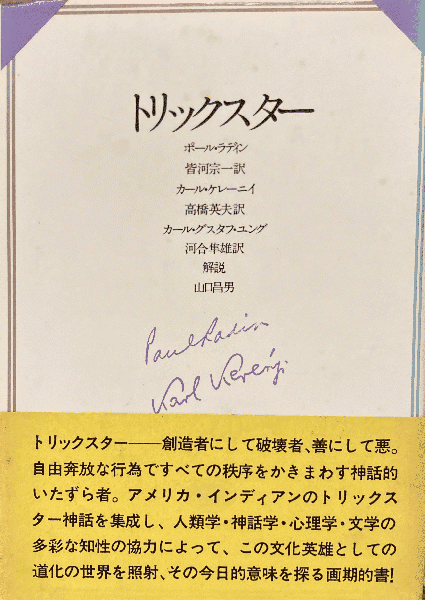 トリックスター
ポール・ラディン
皆河宗一訳
カール・ケレーニイ
高橋英夫訳
カール・グスタフ・ユング
河合隼雄訳
解説
山口昌男
Paul Radin
Karl Kerényi
トリックスター――創造者にして破壊者、善にして悪。
自由奔放な行為ですべての秩序をかきまわす神話的
いたずら者。アメリカ・インディアンのトリックス
ター神話を集成し、人類学・神話学・心理学・文学の
多彩な知性の協力によって、この文化英雄としての
道化の世界を照射、その今日的意味を探る画期的書!